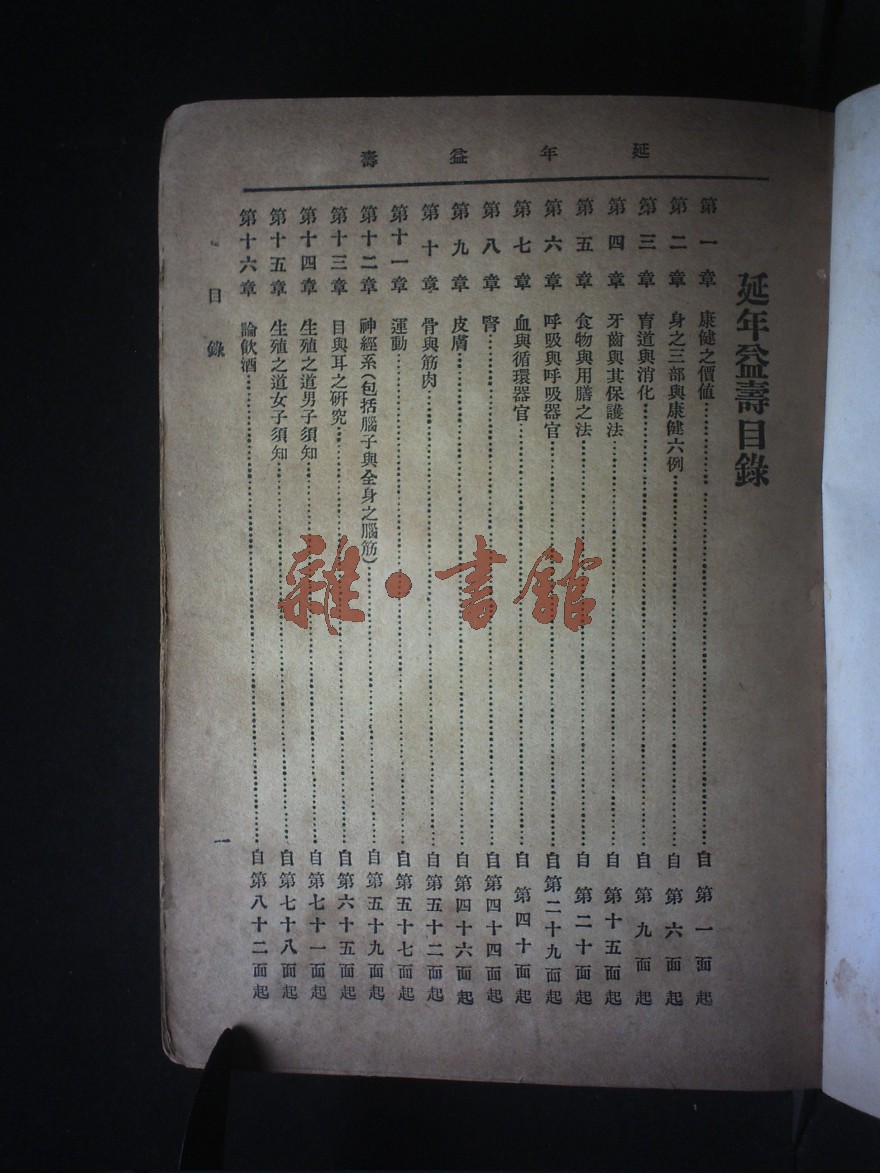 延年益壽
延年益壽目錄
第一章 康健之價値……自第一面起
第二章 身之三部與康健六例……自第六面起
第三章 育道與消化……自第九面起
第四章 牙齒與其保護法……自第十五面起
第五章 食物與用膳之法……自第二十面起
第六章 呼吸與呼吸器官……自第二十九面起
第七章 血與循環器官……自第四十面起
第八章 腎……自第四十四面起
第九章 皮膚……自第四十六面起
第十章 骨與筋肉……自第五十二面起
第十一章 運動……自第五十七面起
第十二章 神經系(包括腦子與全身之腦筋)……自第五十九面起
第十三章 目與耳之研究……自第六十五面起
第十四章 生殖之道男子須知……自第七十一面起
第十五章 生殖之道女子須知……自第七十八面起
第十六章 論飲酒……自第八十二面起
目錄 一
雜·書館